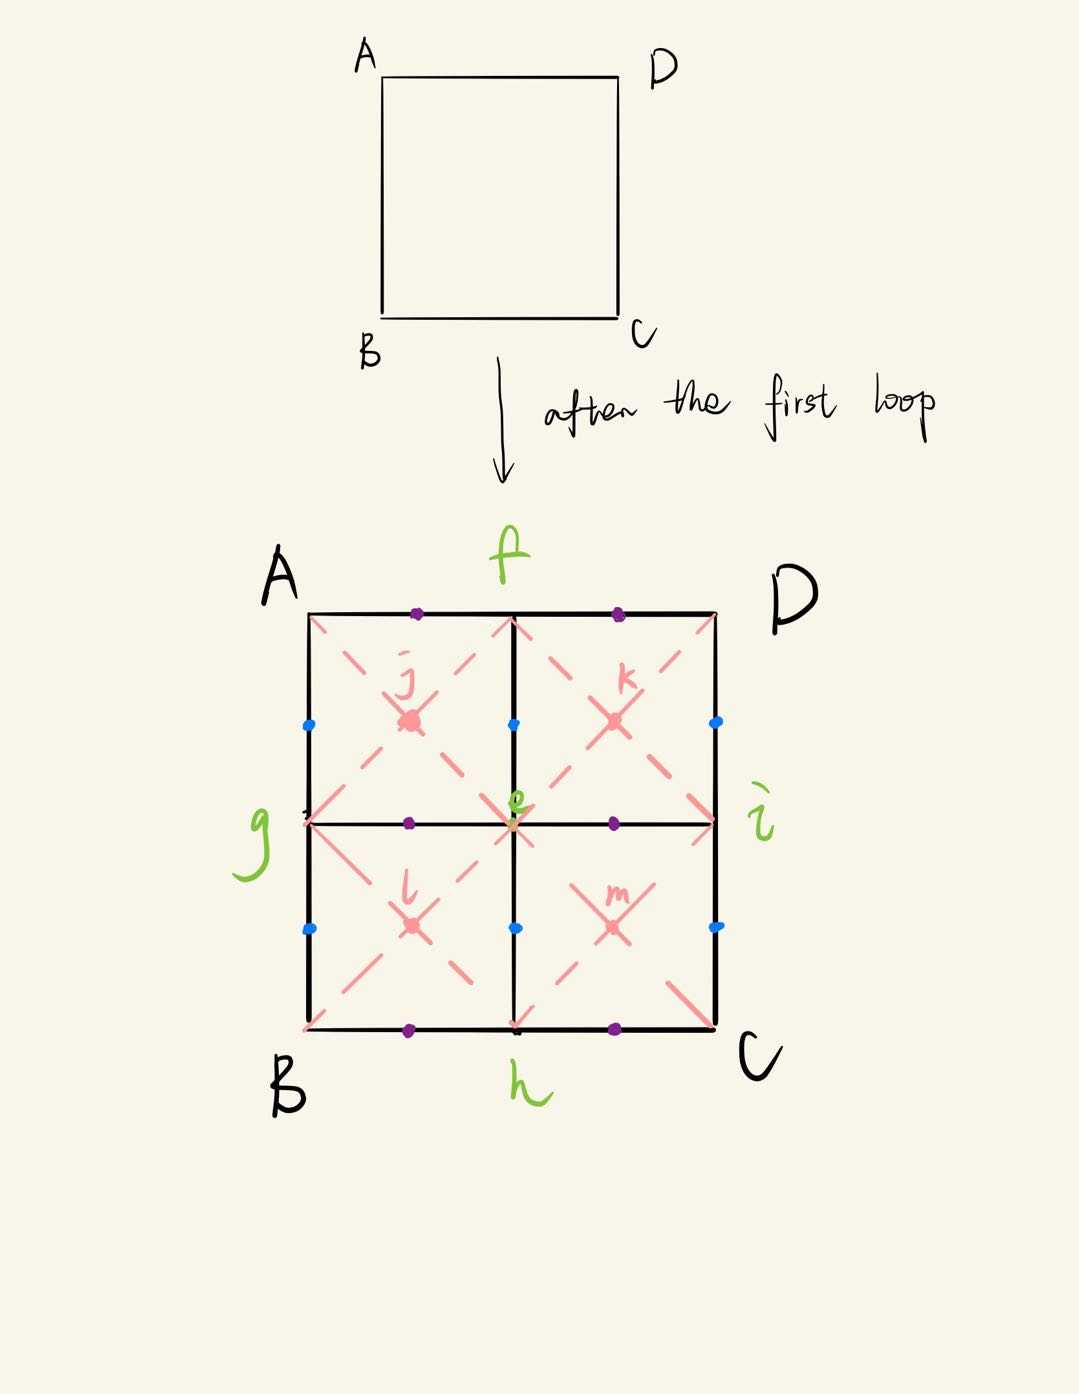 A D
B C
after the first loop
f
A D
j k
g e i
l m
B h C